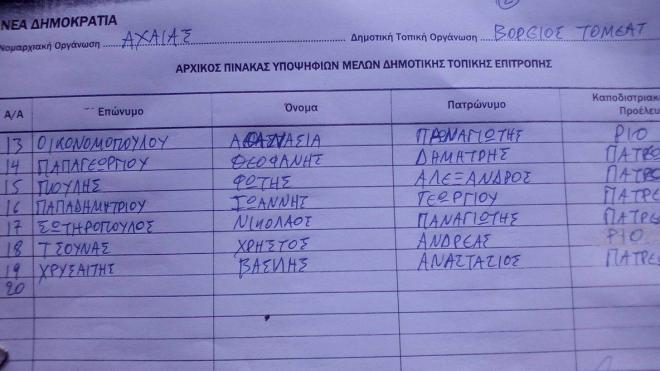 ΝΕΑ ΔΗΜΟΚΡΑΤΙΑ
Νομαρχιακή Οργάνωση ΑΧΑΙΑΣ Δημοτική Τοπική Οργάνωση ΒΟΡΕΙΟΣ ΤΟΜΕΑΣ
ΑΡΧΙΚΟΣ ΠΙΝΑΚΑΣ ΥΠΟΨΗΦΙΩΝ ΜΕΛΩΝ ΔΗΜΟΤΙΚΗΣ ΤΟΠΙΚΗΣ ΕΠΙΤΡΟΠΗΣ
Α/Α Επώνυμο Όνομα Πατρώνυμο Καποδιστριακ
Προέλευ
13 ΟΙΚΟΝΟΜΟΠΟΥΛΟΥ ΠΑΝΑΓΙΩΤΗΣ ΡΙΟ
14 ΠΑΠΑΓΕΩΡΓΙΟΥ ΘΕΟΦΑΝΗΣ ΔΗΜΗΤΡΗΣ ΠΑΤΡΕΩ
15 ΦΩΤΗΣ ΑΛΕΞΑΝΔΡΟΣ ΠΑΤΡΕ
16 ΠΑΠΑΔΗΜΗΤΡΙΟΥ ΙΩΑΝΝΗΣ ΓΕΩΡΓΙΟΥ ΠΑΤΡΕ
17 ΣΩΤΗΡΟΠΟΥΛΟΣ ΝΙΚΟΛΑΟΣ ΠΑΝΑΓΙΩΤΗΣ ΠΑΤΡΕ
18 ΤΣΟΥΝΑΣ ΧΡΗΣΤΟΣ ΑΝΔΡΕΑΣ ΡΙΟ
19 ΧΡΥΣΑΙΤΗΣ ΒΑΣΙΛΗΣ ΑΝΑΣΤΑΣΙΟΣ ΠΑΤΡΕ
20